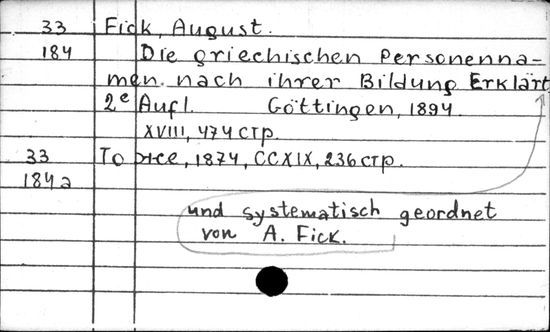 33 Fick, August.
184 Die griechischen Personenna-
men nach ihrer Bildung Erklärt
2e Aufl. Göttingen, 1894.
XVIII, 474 стр.
33 То же, 1874, CCXIX, 236 стр.
184a
und systematisch geordnet
von A. Fick.